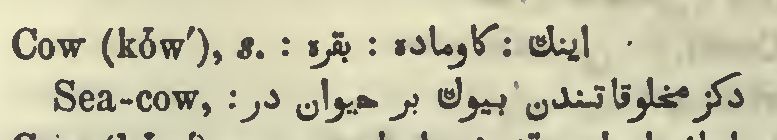 Cow (kŏw′), s. : اينك : كاوماده : بقره
Sea-cow, : دكز مخلوقاتندن بيوك بر حيوان در